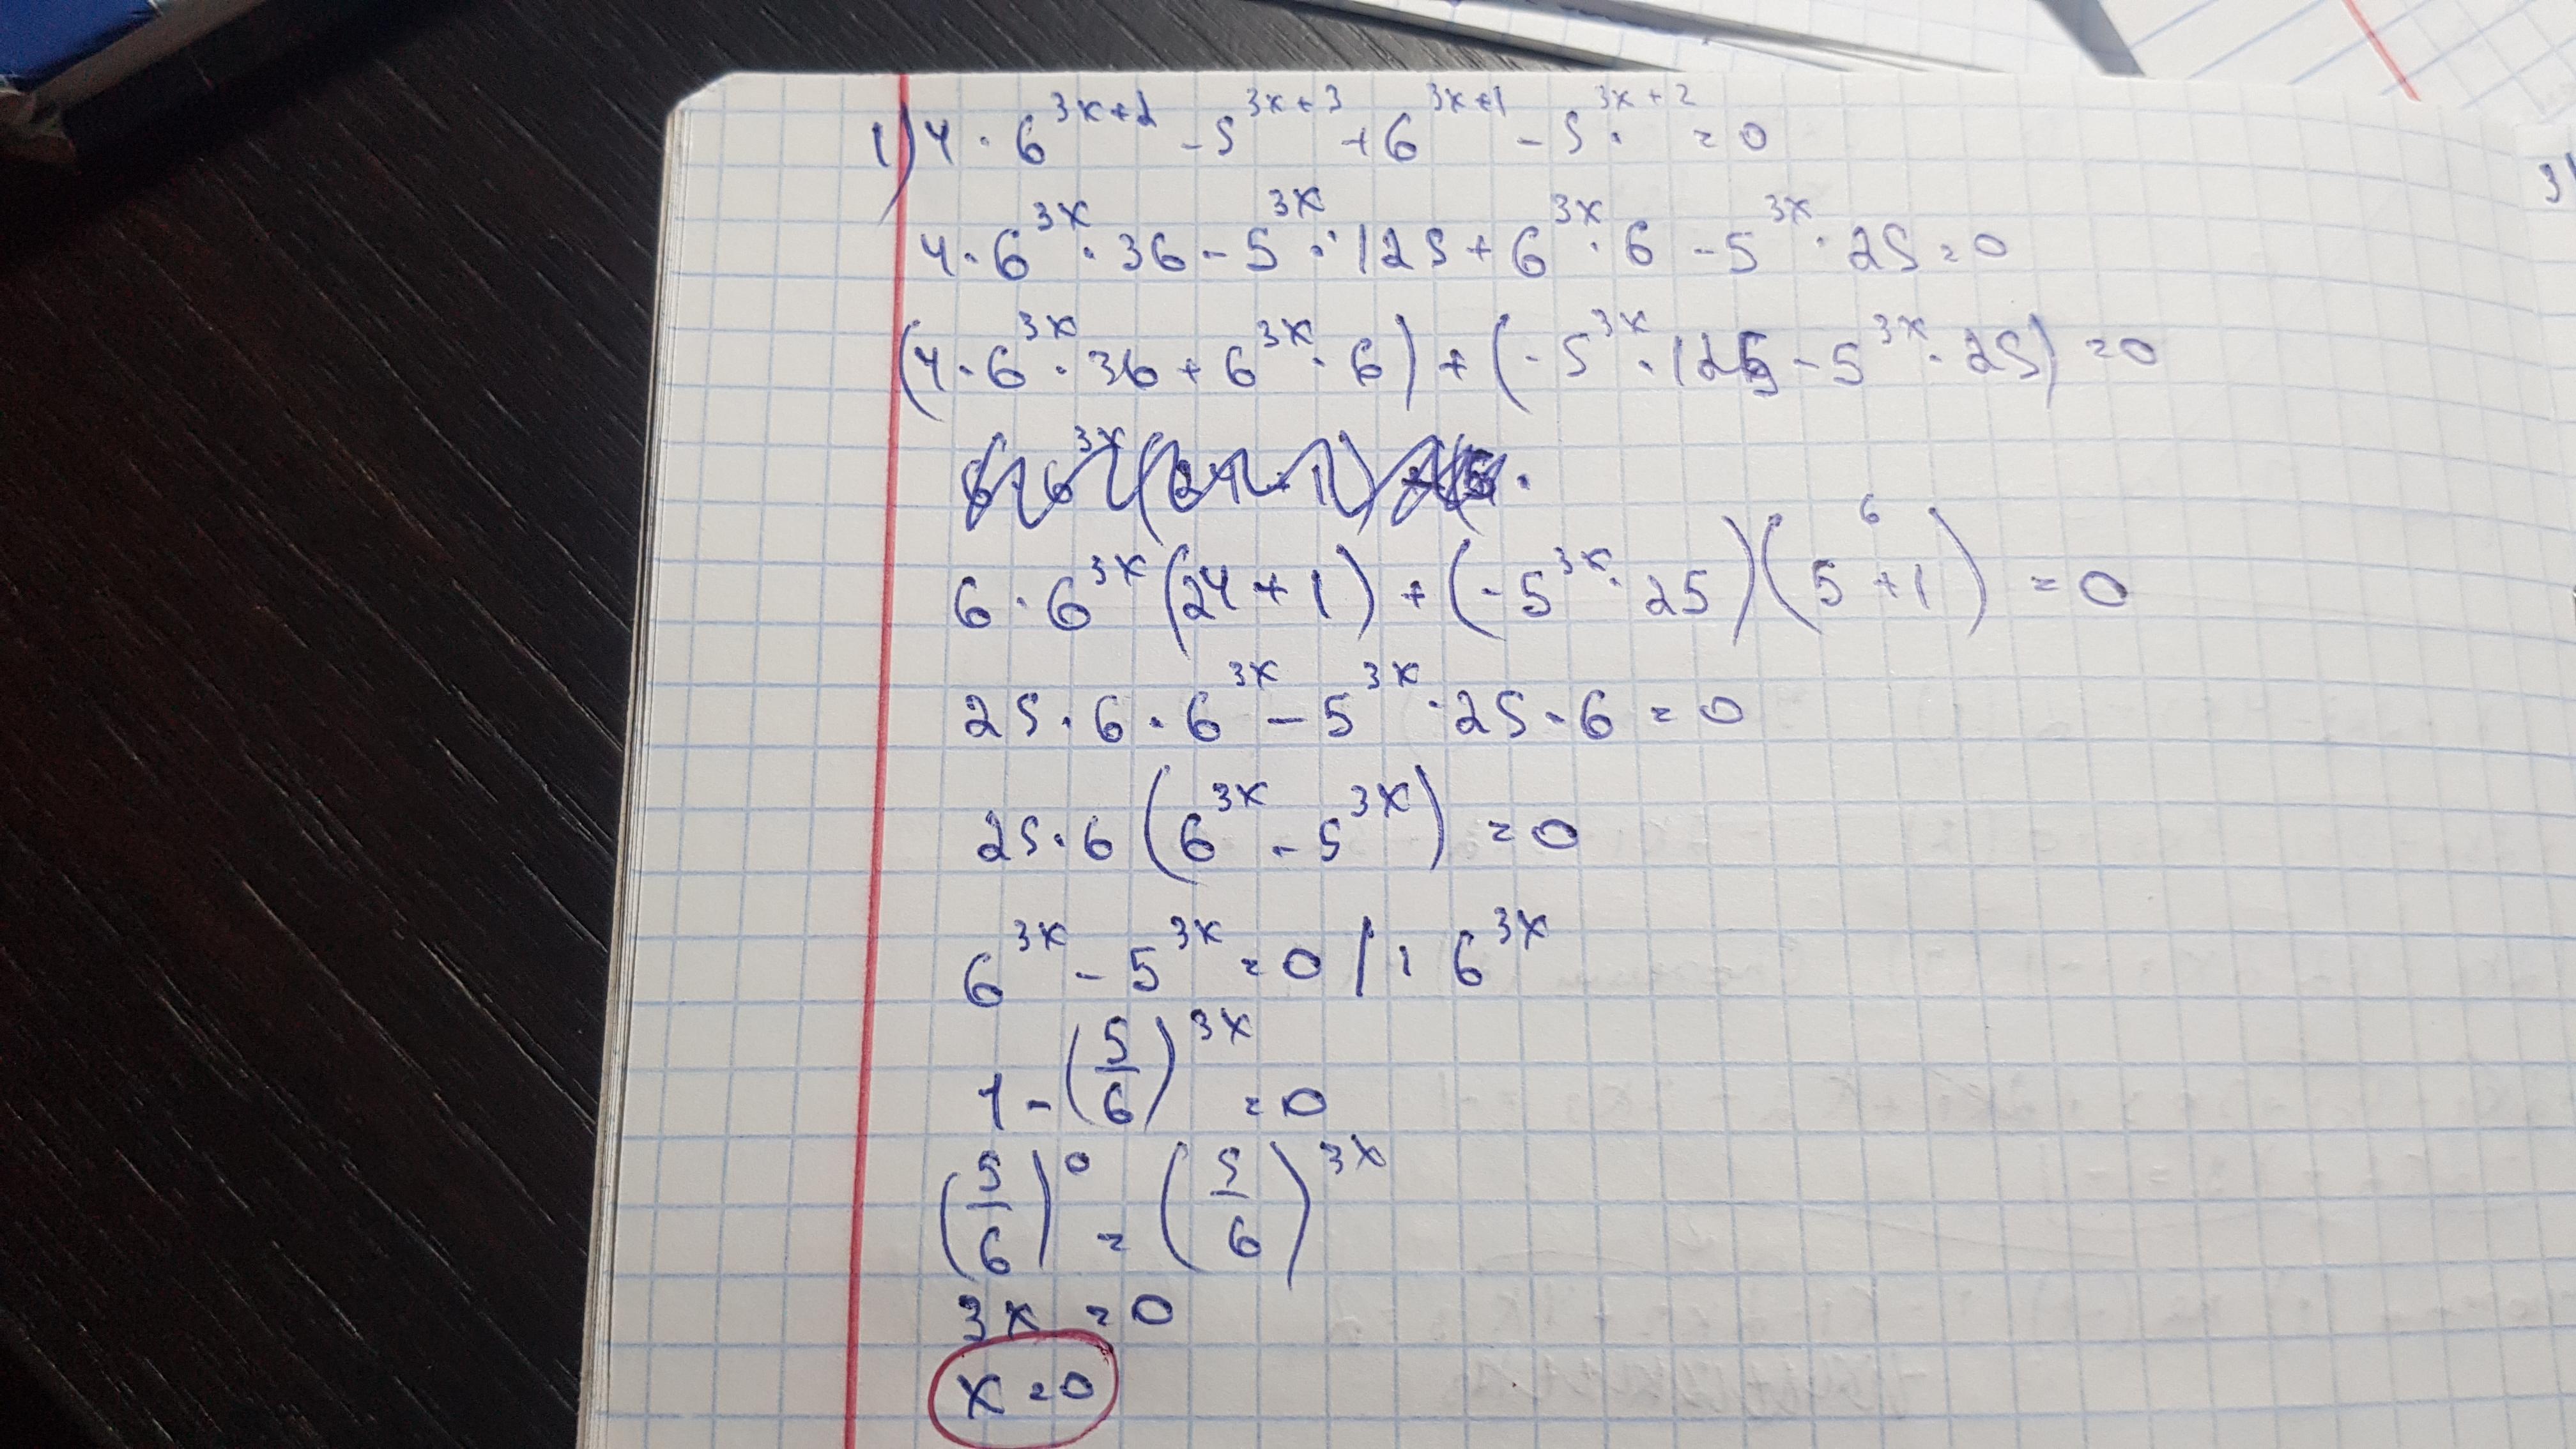 1) 4 · 6^(3x+2) - 5^(3x+3) + 6^(3x+1) - 5^(3x+2) = 0
4 · 6^(3x) · 36 - 5^(3x) · 125 + 6^(3x) · 6 - 5^(3x) · 25 = 0
(4 · 6^(3x) · 36 + 6^(3x) · 6) + (-5^(3x) · 125 - 5^(3x) · 25) = 0
6
6 · 6^(3x) (24 + 1) + (-5^(3x) · 25)(5 + 1) = 0
25 · 6 · 6^(3x) - 5^(3x) · 25 · 6 = 0
25 · 6 (6^(3x) - 5^(3x)) = 0
6^(3x) - 5^(3x) = 0 / : 6^(3x)
1 - (5/6)^(3x) = 0
(5/6)^0 = (5/6)^(3x)
3x = 0
x = 0